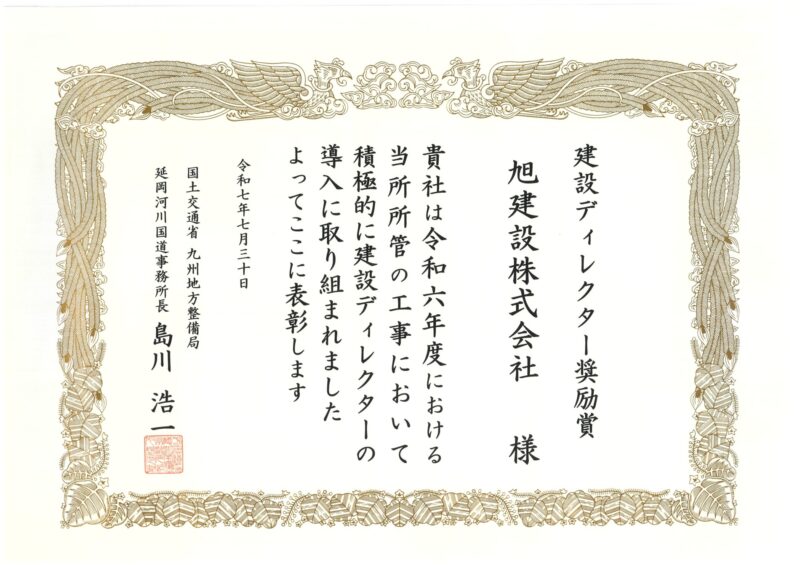 建設ディレクター奨励賞
旭建設株式会社 様
貴社は令和六年度における
当所所管の工事において
積極的に建設ディレクターの
導入に取り組まれました
よってここに表彰します
令和七年七月三十日
国土交通省 九州地方整備局
延岡河川国道事務所長 島川 浩一